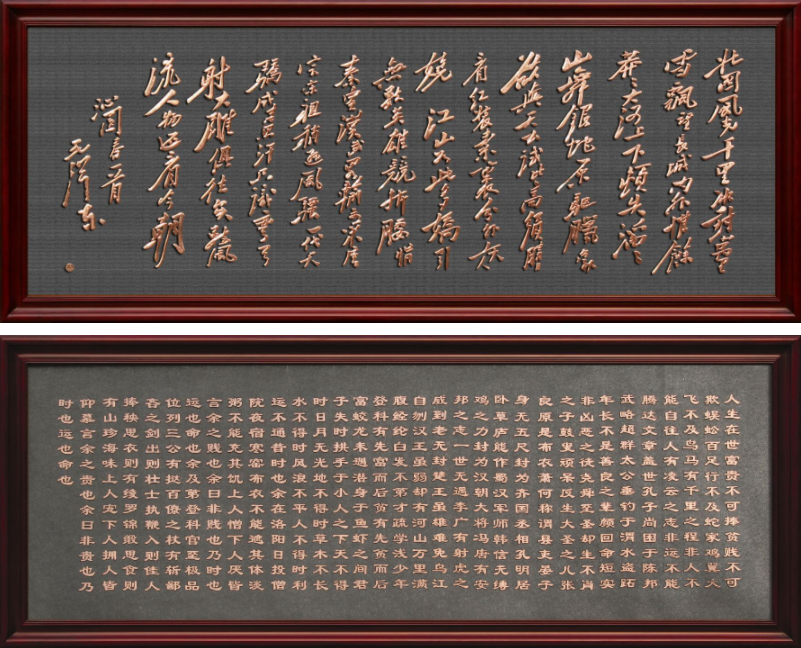 北国风光千里冰封万里
雪飘望长城内外惟馀
莽莽大河上下顿失滔滔
山舞银蛇原驱腊象
欲与天公试比高须晴日
看红装素裹分外妖
娆 江山如此多娇引
無数英雄競折腰惜
秦皇汉武略输文采唐
宗宋祖稍逊风骚一代天
骄成吉思汗只识弯弓
射大雕俱往矣数风
流人物还看今朝
沁园春雪
毛泽东
人生在世富贵不可捧贫贱不可
欺蜈蚣百足行不及蛇家鸡翼大
飞不及鸟马有千里之程非人不
能自往人有凌云之志非运不能
腾达文章盖世孔子尚困于陈邦
武略超群太公垂钓于渭水盗跖
年长不是善良之辈颜回命短实
非凶恶之徒尧舜至圣却生不肖
之子鼓叟顽呆反生大圣之儿张
良原是布衣萧何称谓县吏晏子
身无五尺封为齐国丞相孔明居
卧草庐能作蜀汉军师韩信无缚
鸡之力封为汉朝大将冯唐有安
邦之志一世无遇李广有射虎之
威到老无封楚王虽雄难免乌江
自刎汉王虽弱却有河山万里满
腹经纶白发不第才疏学浅少年
登科有先富而后贫有先贫而后
富蛟龙未遇潜身于鱼虾之间君
子失时拱手于小人之下天不得
时日月无光地不得时草木不长
水不得时风浪不平人不得时利
运不通昔时也余在洛阳日投僧
院夜宿寒窑布衣不能遮其体淡
粥不能充其饥上人憎下人厌皆
言余之贱也余曰非贱也乃时也
运也命也余及第登科官至极品
位列三公有挞百僚之杖有斩鄙
吝之剑出则壮士执鞭入则佳人
捧秧思衣则有绫罗锦缎思食则
有山珍海味上人宠下人拥人皆
仰慕言余之贵也余曰非贵也乃
时也运也命也